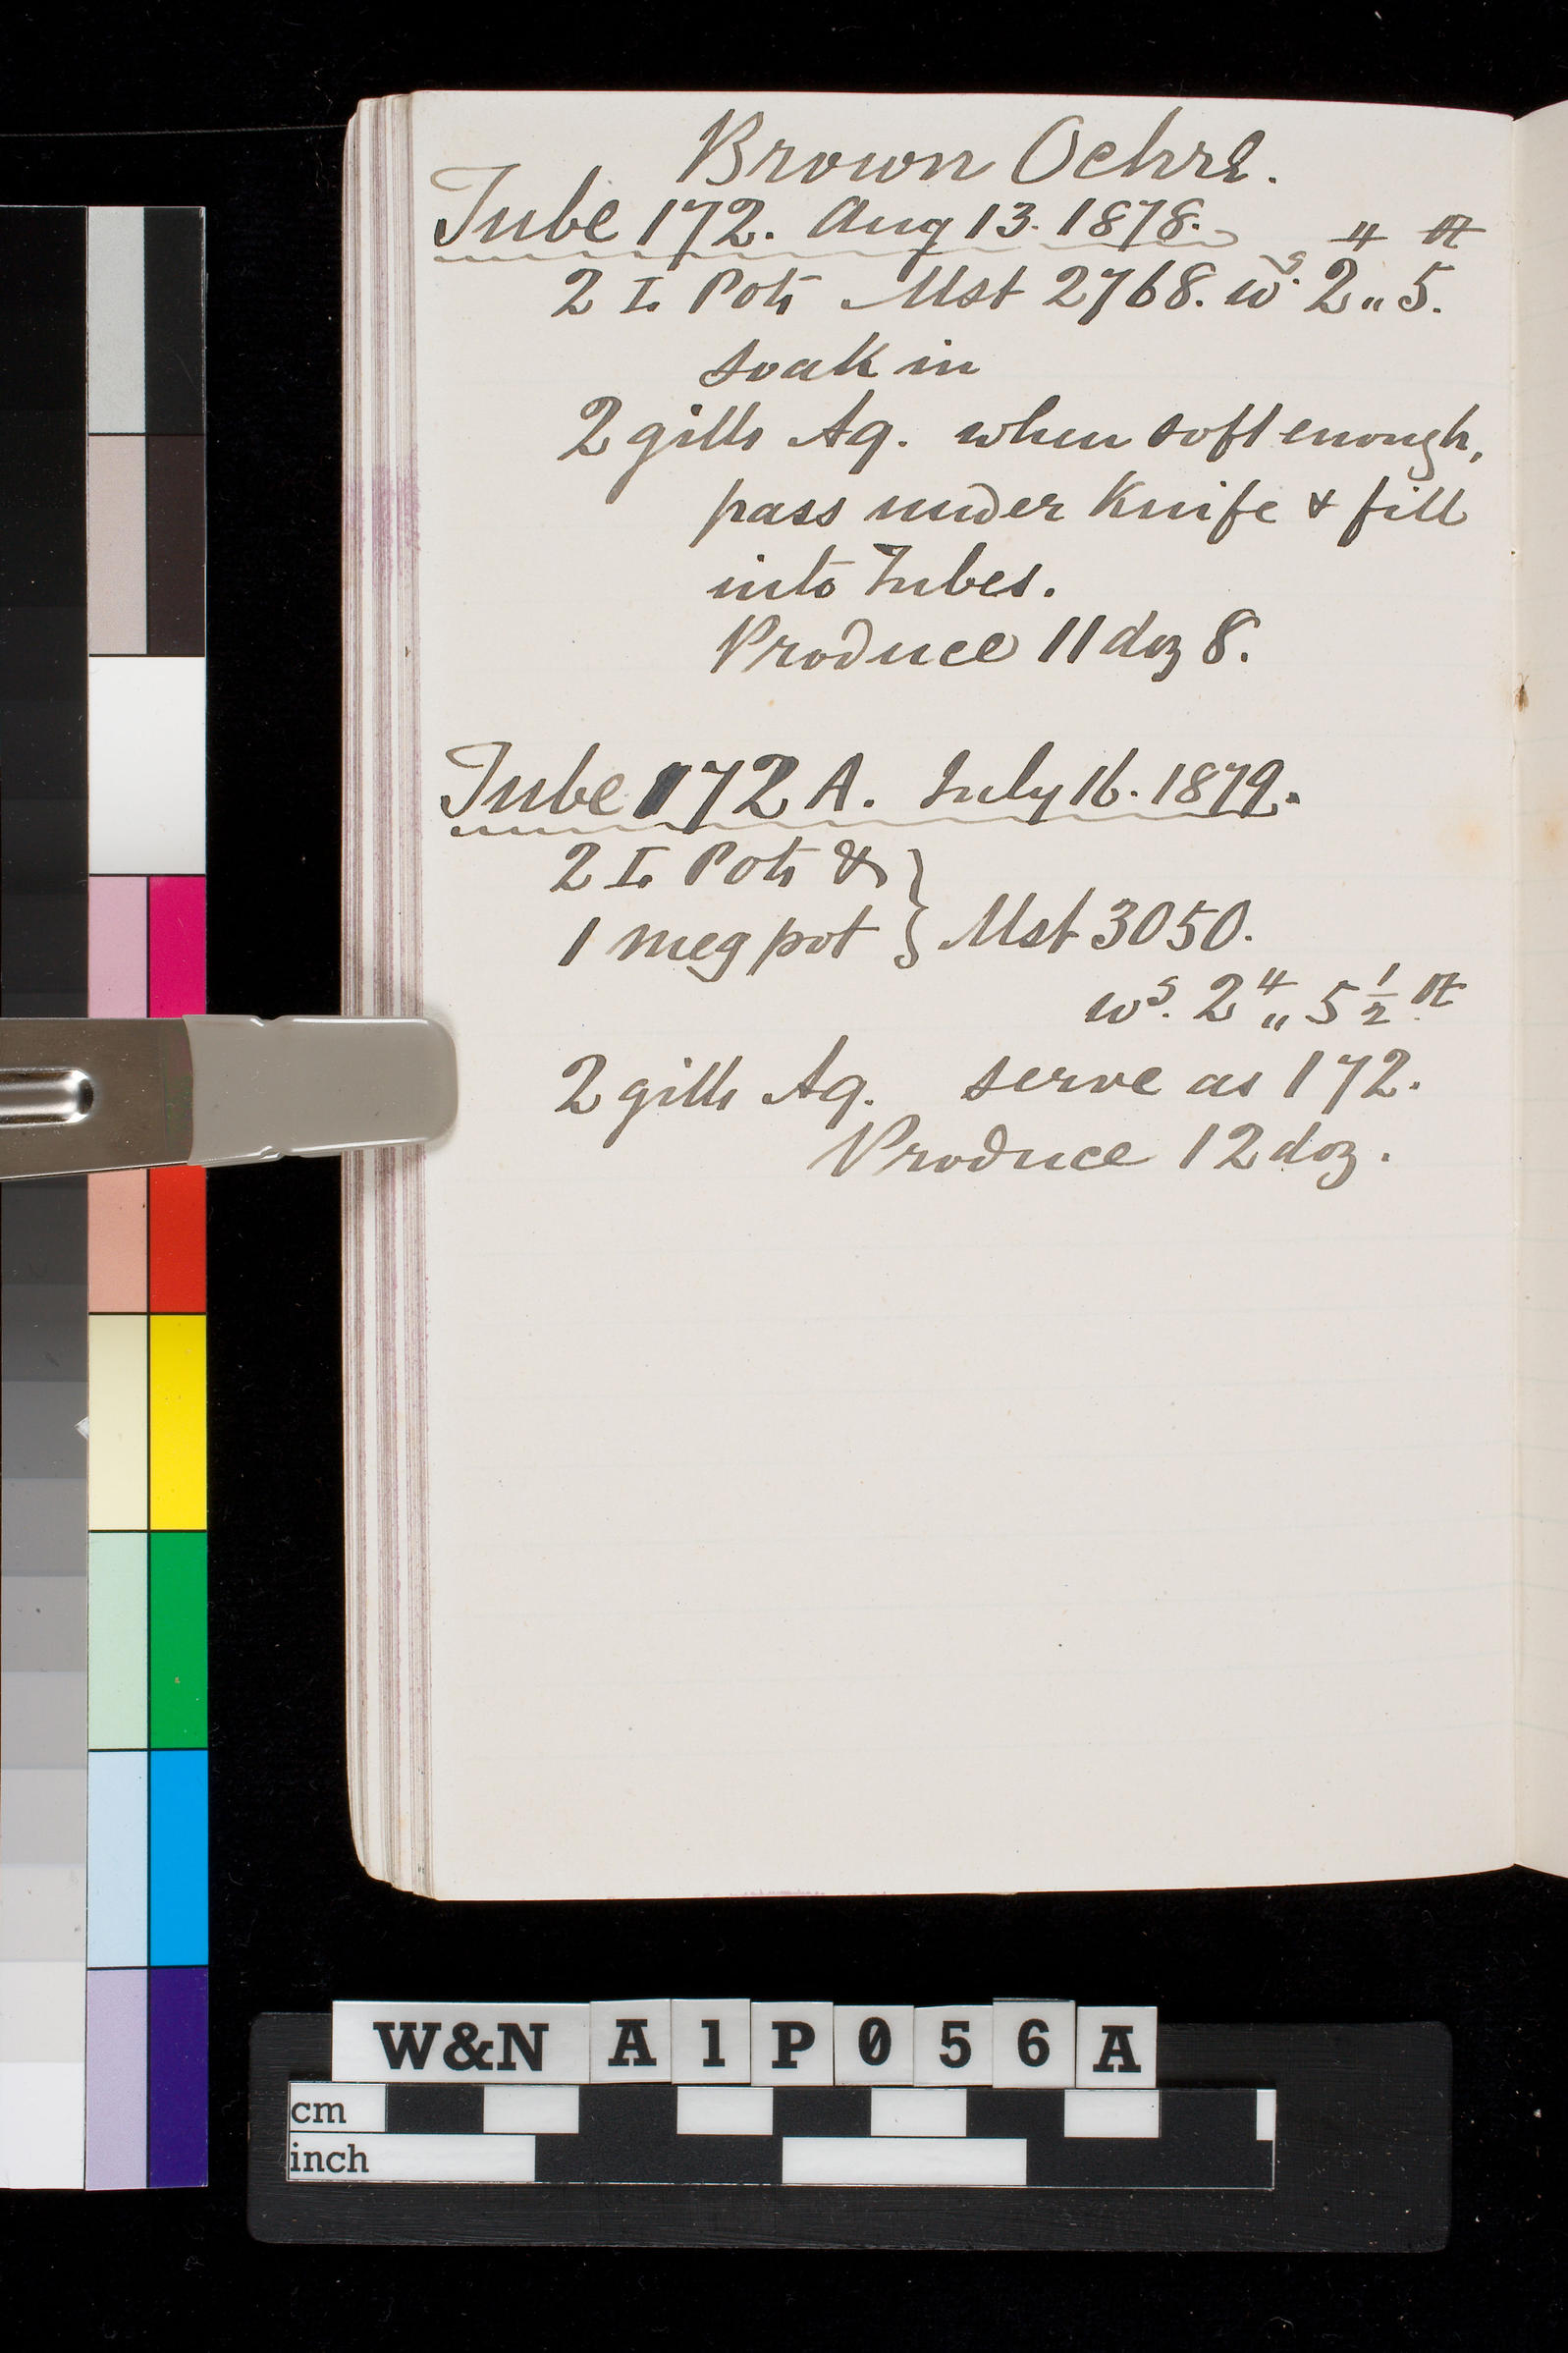 Brown Ochre.
Tube 172. Aug 13. 1878.
2 I. Pots Mst 2768. ws. 2 „ 5.
soak in
2 gills Aq. when soft enough,
pass under Knife & fill
into Tubes.
Produce 11 doz 8.
Tube 172 A. July 16. 1879.
2 I. Pots &
1 meg pot } Mst 3050.
ws. 2 „ 5 1/2
2 gills Aq. serve as 172.
Produce 12 doz.
W&N A1P056A
cm
inch